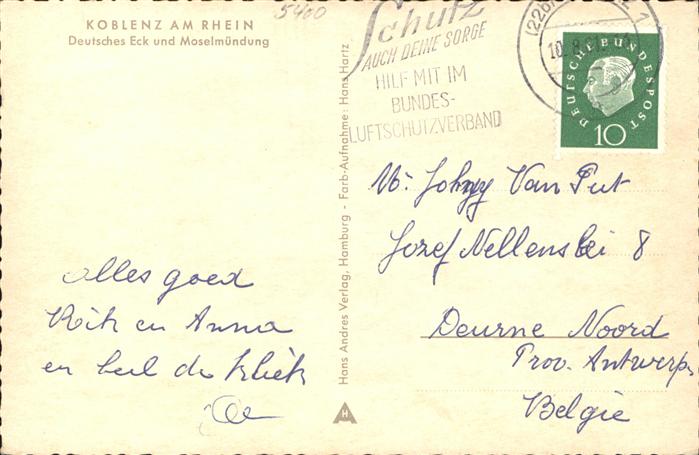 KOBLENZ AM RHEIN
Deutsches Eck und Moselmündung
5400
Schutz
AUCH DEINE SORGE
HILF MIT IM
BUNDES-
LUFTSCHUTZVERBAND
(22b)
10.8.
1
DEUTSCHE BUNDESPOST
10
Hans Andres Verlag, Hamburg - Farb-Aufnahme: Hans Hartz
M. Johny Van Put
Jozef Nellenslei 8
Deurne Noord
Prov. Antwerp.
Belgie
alles goed
Rik en Anna
en heel de kliek
H